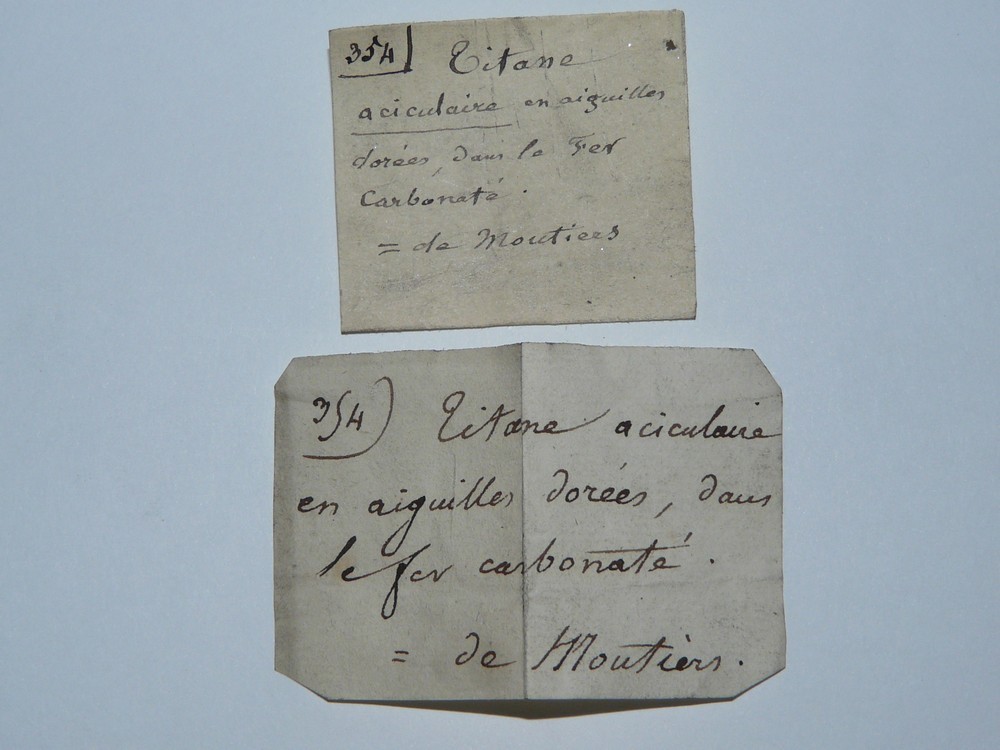 354) Titane
aciculaire en aiguilles
dorées, dans le Fer
Carbonaté.
= de Moutiers
354) Titane aciculaire
en aiguilles dorées, dans
le fer carbonaté.
= de Moutièrs.